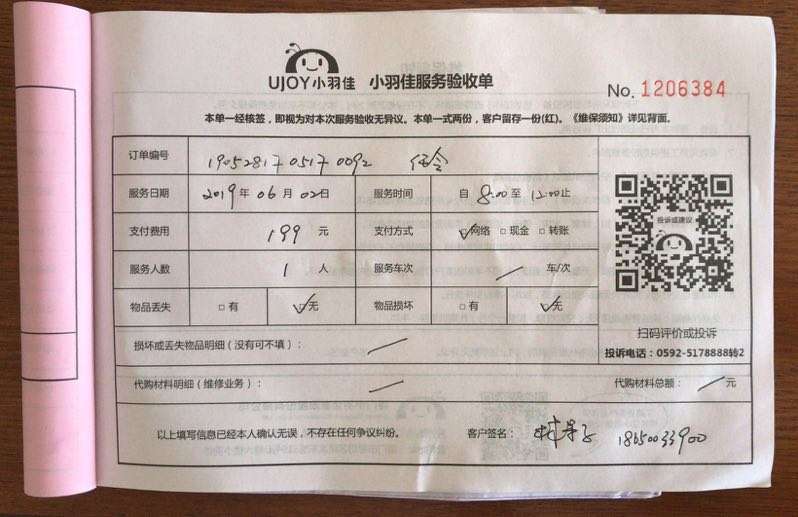 UJOY小羽佳 小羽佳服务验收单
No. 1206384
本单一经核签，即视为对本次服务验收无异议。本单一式两份，客户留存一份(红)。《维保须知》详见背面。
订单编号 1905281705170092
服务日期 2019年06月02日 服务时间 自8:00至12:00止
支付费用 199元 支付方式 ☑网络 □现金 □转账
服务人数 1人 服务车次 / 车/次
物品丢失 □有 ☑无 物品损坏 □有 ☑无
投诉或建议
扫码评价或投诉
损坏或丢失物品明细（没有可不填）： /
投诉电话：0592-5178888转2
代购材料明细（维修业务）： / 代购材料总额： / 元
以上填写信息已经本人确认无误，不存在任何争议纠纷。 客户签名： 18650033900